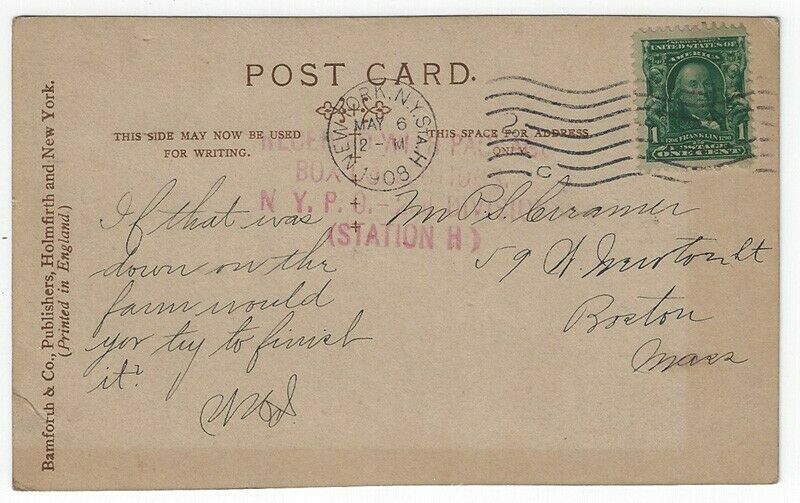 POST CARD.
THIS SIDE MAY NOW BE USED
FOR WRITING.
THIS SPACE FOR ADDRESS
ONLY.
NEW YORK, N.Y. STA. H
MAY 6
2 - M
1908
SERIES 1902
UNITED STATES OF
AMERICA
1 FRANKLIN 1
POSTAGE
ONE CENT
BOX
N. Y. P. O. -
(STATION H)
If that was
down on the
farm would
you try to finish
it?
Mr P.S. Cramer
59 W. Newton St
Boston
Mass
Bamforth & Co., Publishers, Holmfirth and New York.
(Printed in England)